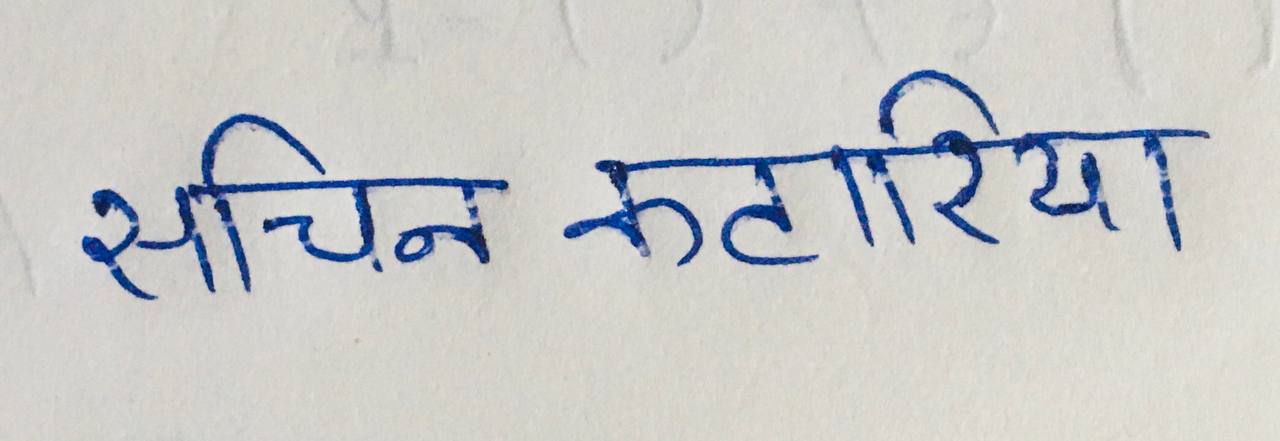 सचिन कटारिया